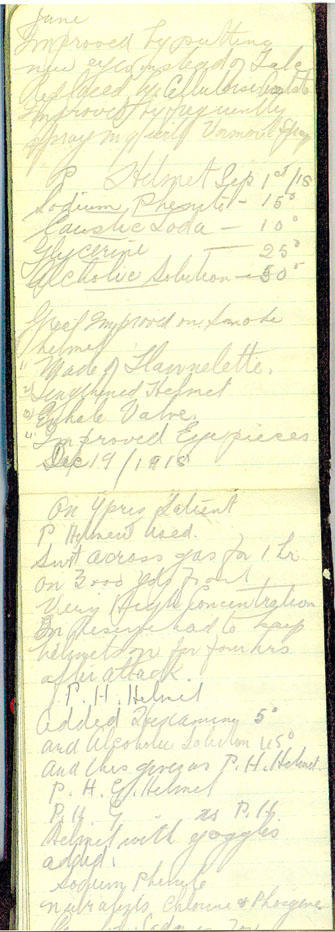 June
Improved by putting
new eyes instead of Talc
Replaced by Cellulose
Improved by frequently
spraying with Vermorel Spray
P Helmet Sep 1st/15
Sodium Phenylol - 15°
Caustic Soda - 10°
Glycerine 25°
Alcholic Solution - 50°
Great Improved on Smoke
helmet
1) Made of Flannelette.
2) Lengthened Helmet
3) Exhale Valve.
4) Improved Eyepieces
Dec 19/1915
On Ypres Salient
P Helmet Used.
Sent across gas for 1 hr
on 3000 yds front
Very High Concentration
In reserve had to keep
helmets on for four hrs
after attack.
P. H. Helmet
added Hexamine 5°
and Alcoholic Solution 45°
and this gives as P. H. Helmet.
P. H. G. Helmet
P. H. G. as P. H.
Helmet with goggles
added.
Sodium Phenyle
neutralizes Chlorine & Phosgene